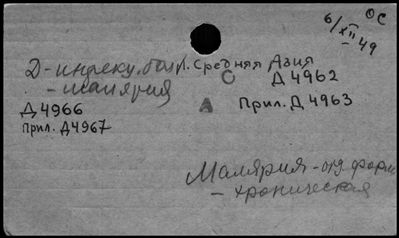 ОС
6/XII-49
Д-инфекц. бол. Средняя Азия
- малярия
Д 4962
Д 4966
Прил. Д 4963
Прил. Д4967
Малярия - отд. форм
- хроническая